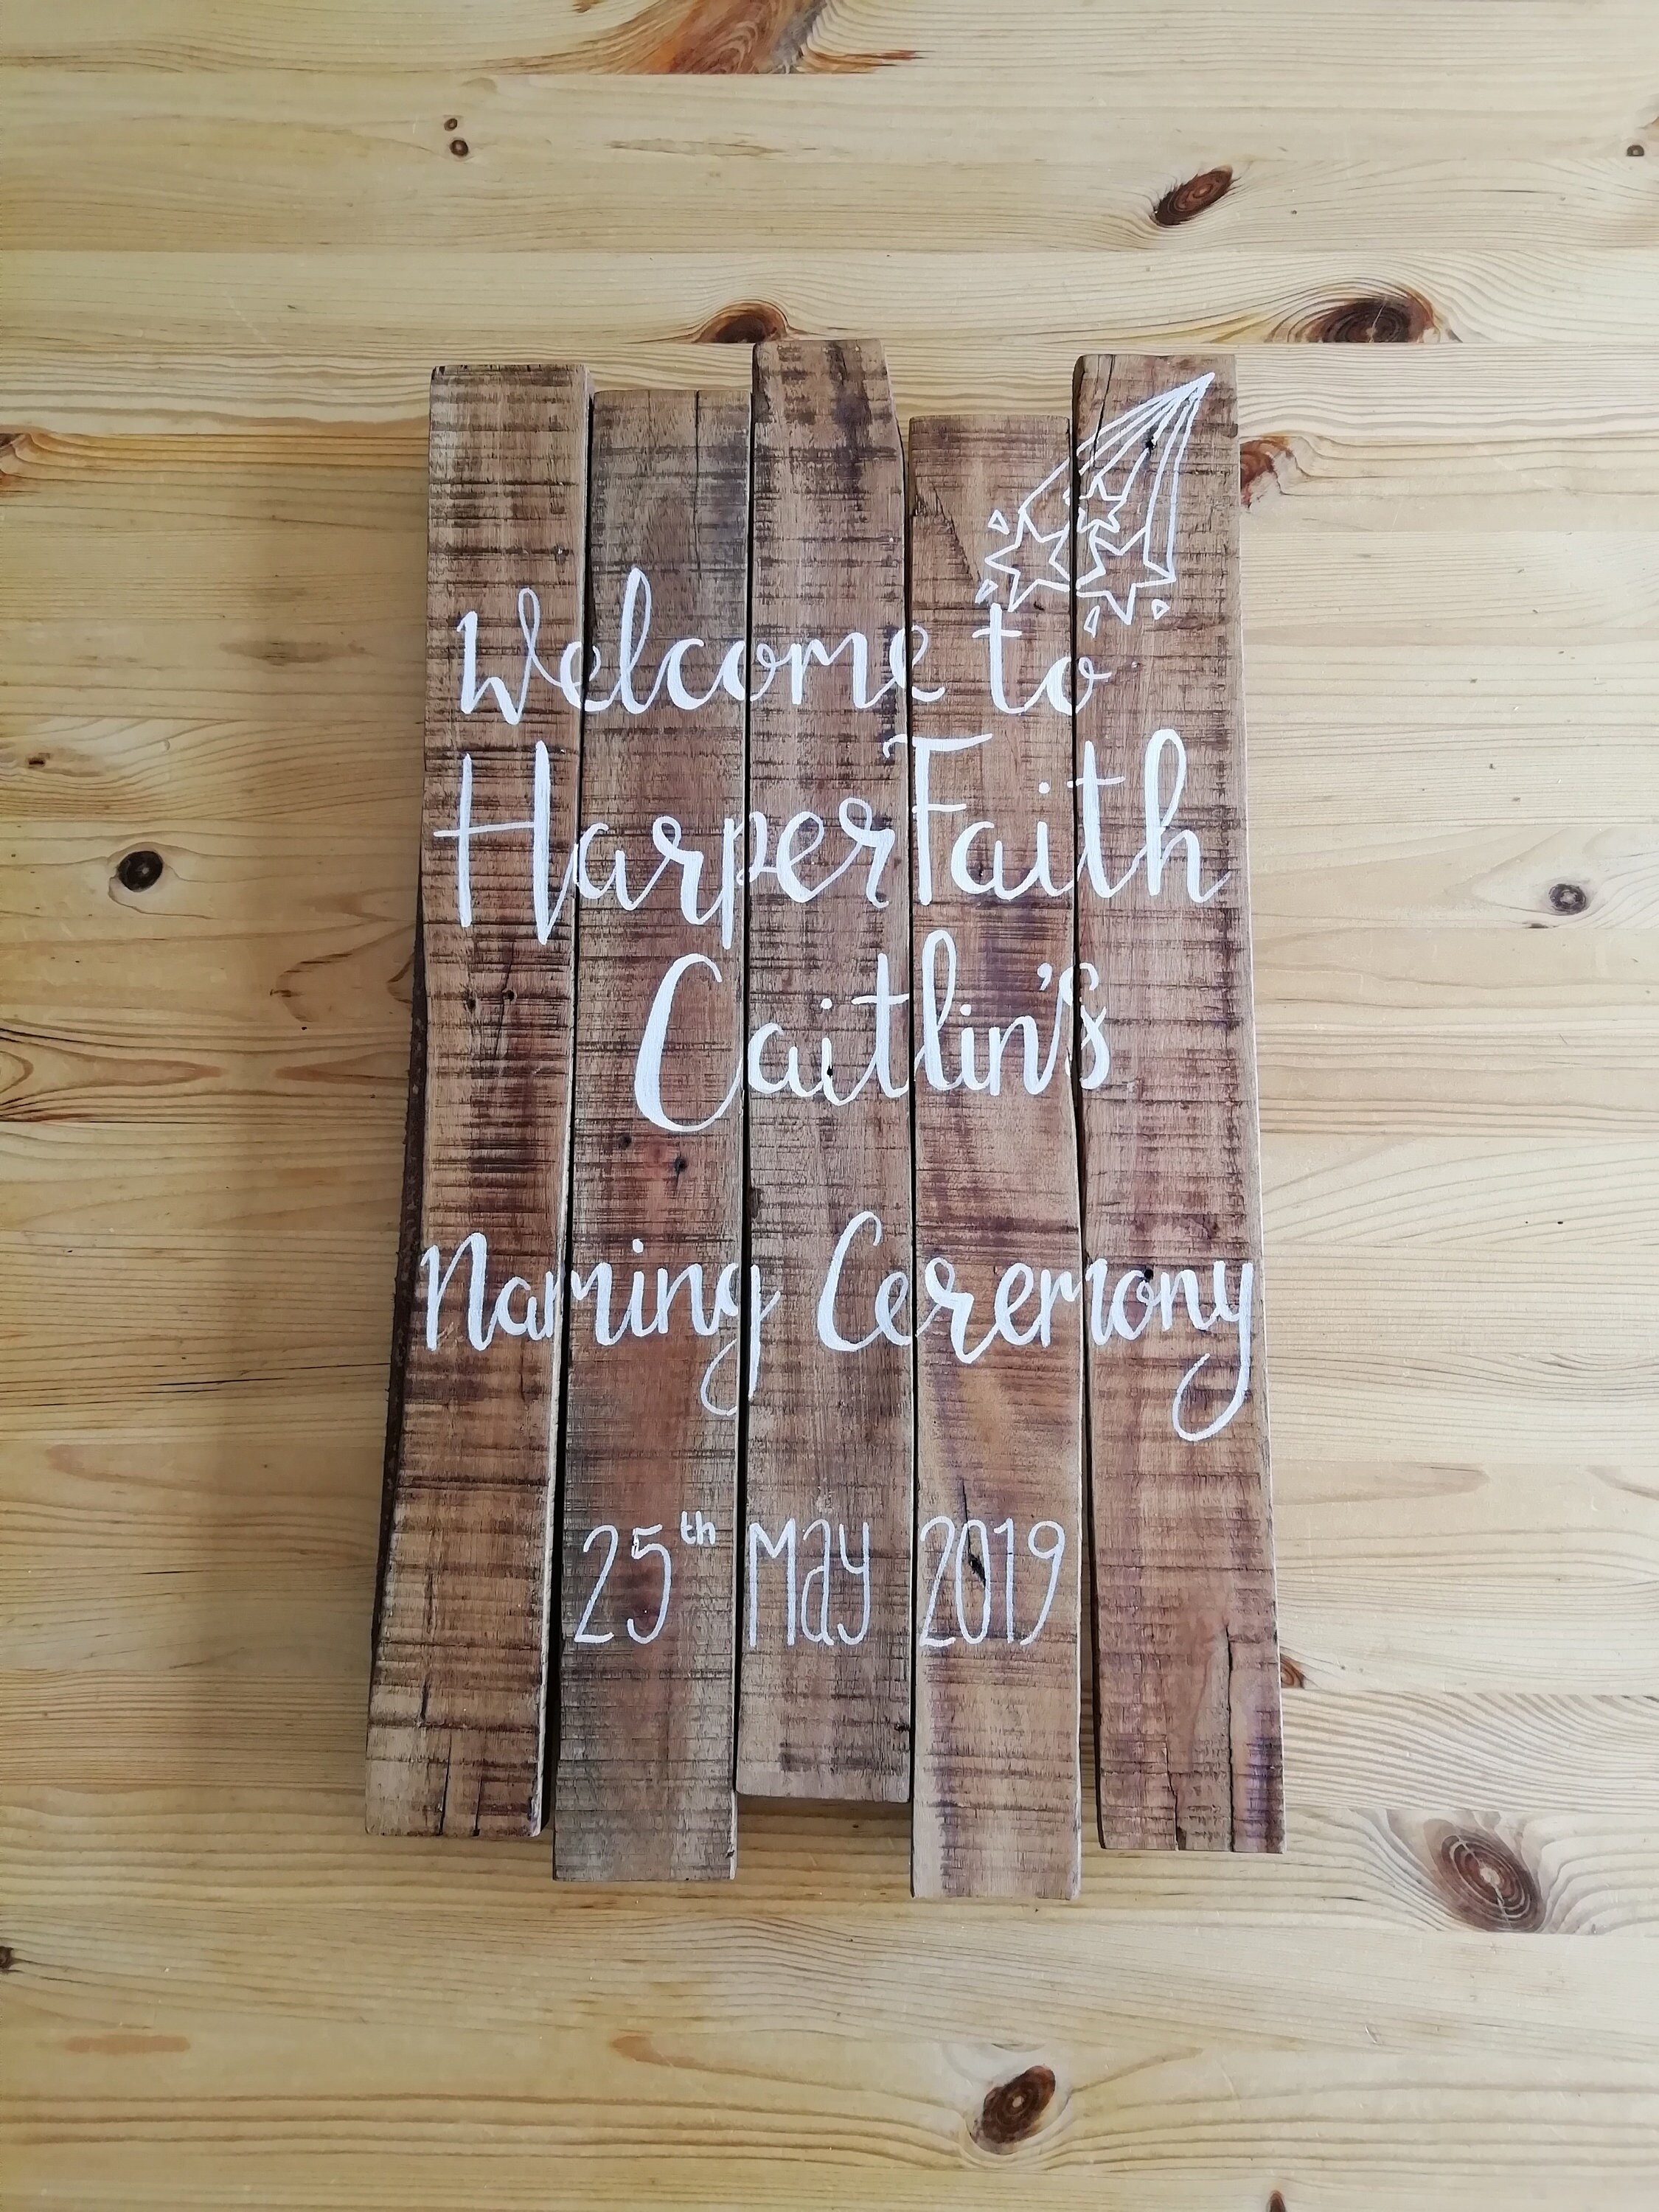 Welcome to
Harper Faith
Caitlin's
Naming Ceremony
25th May 2019